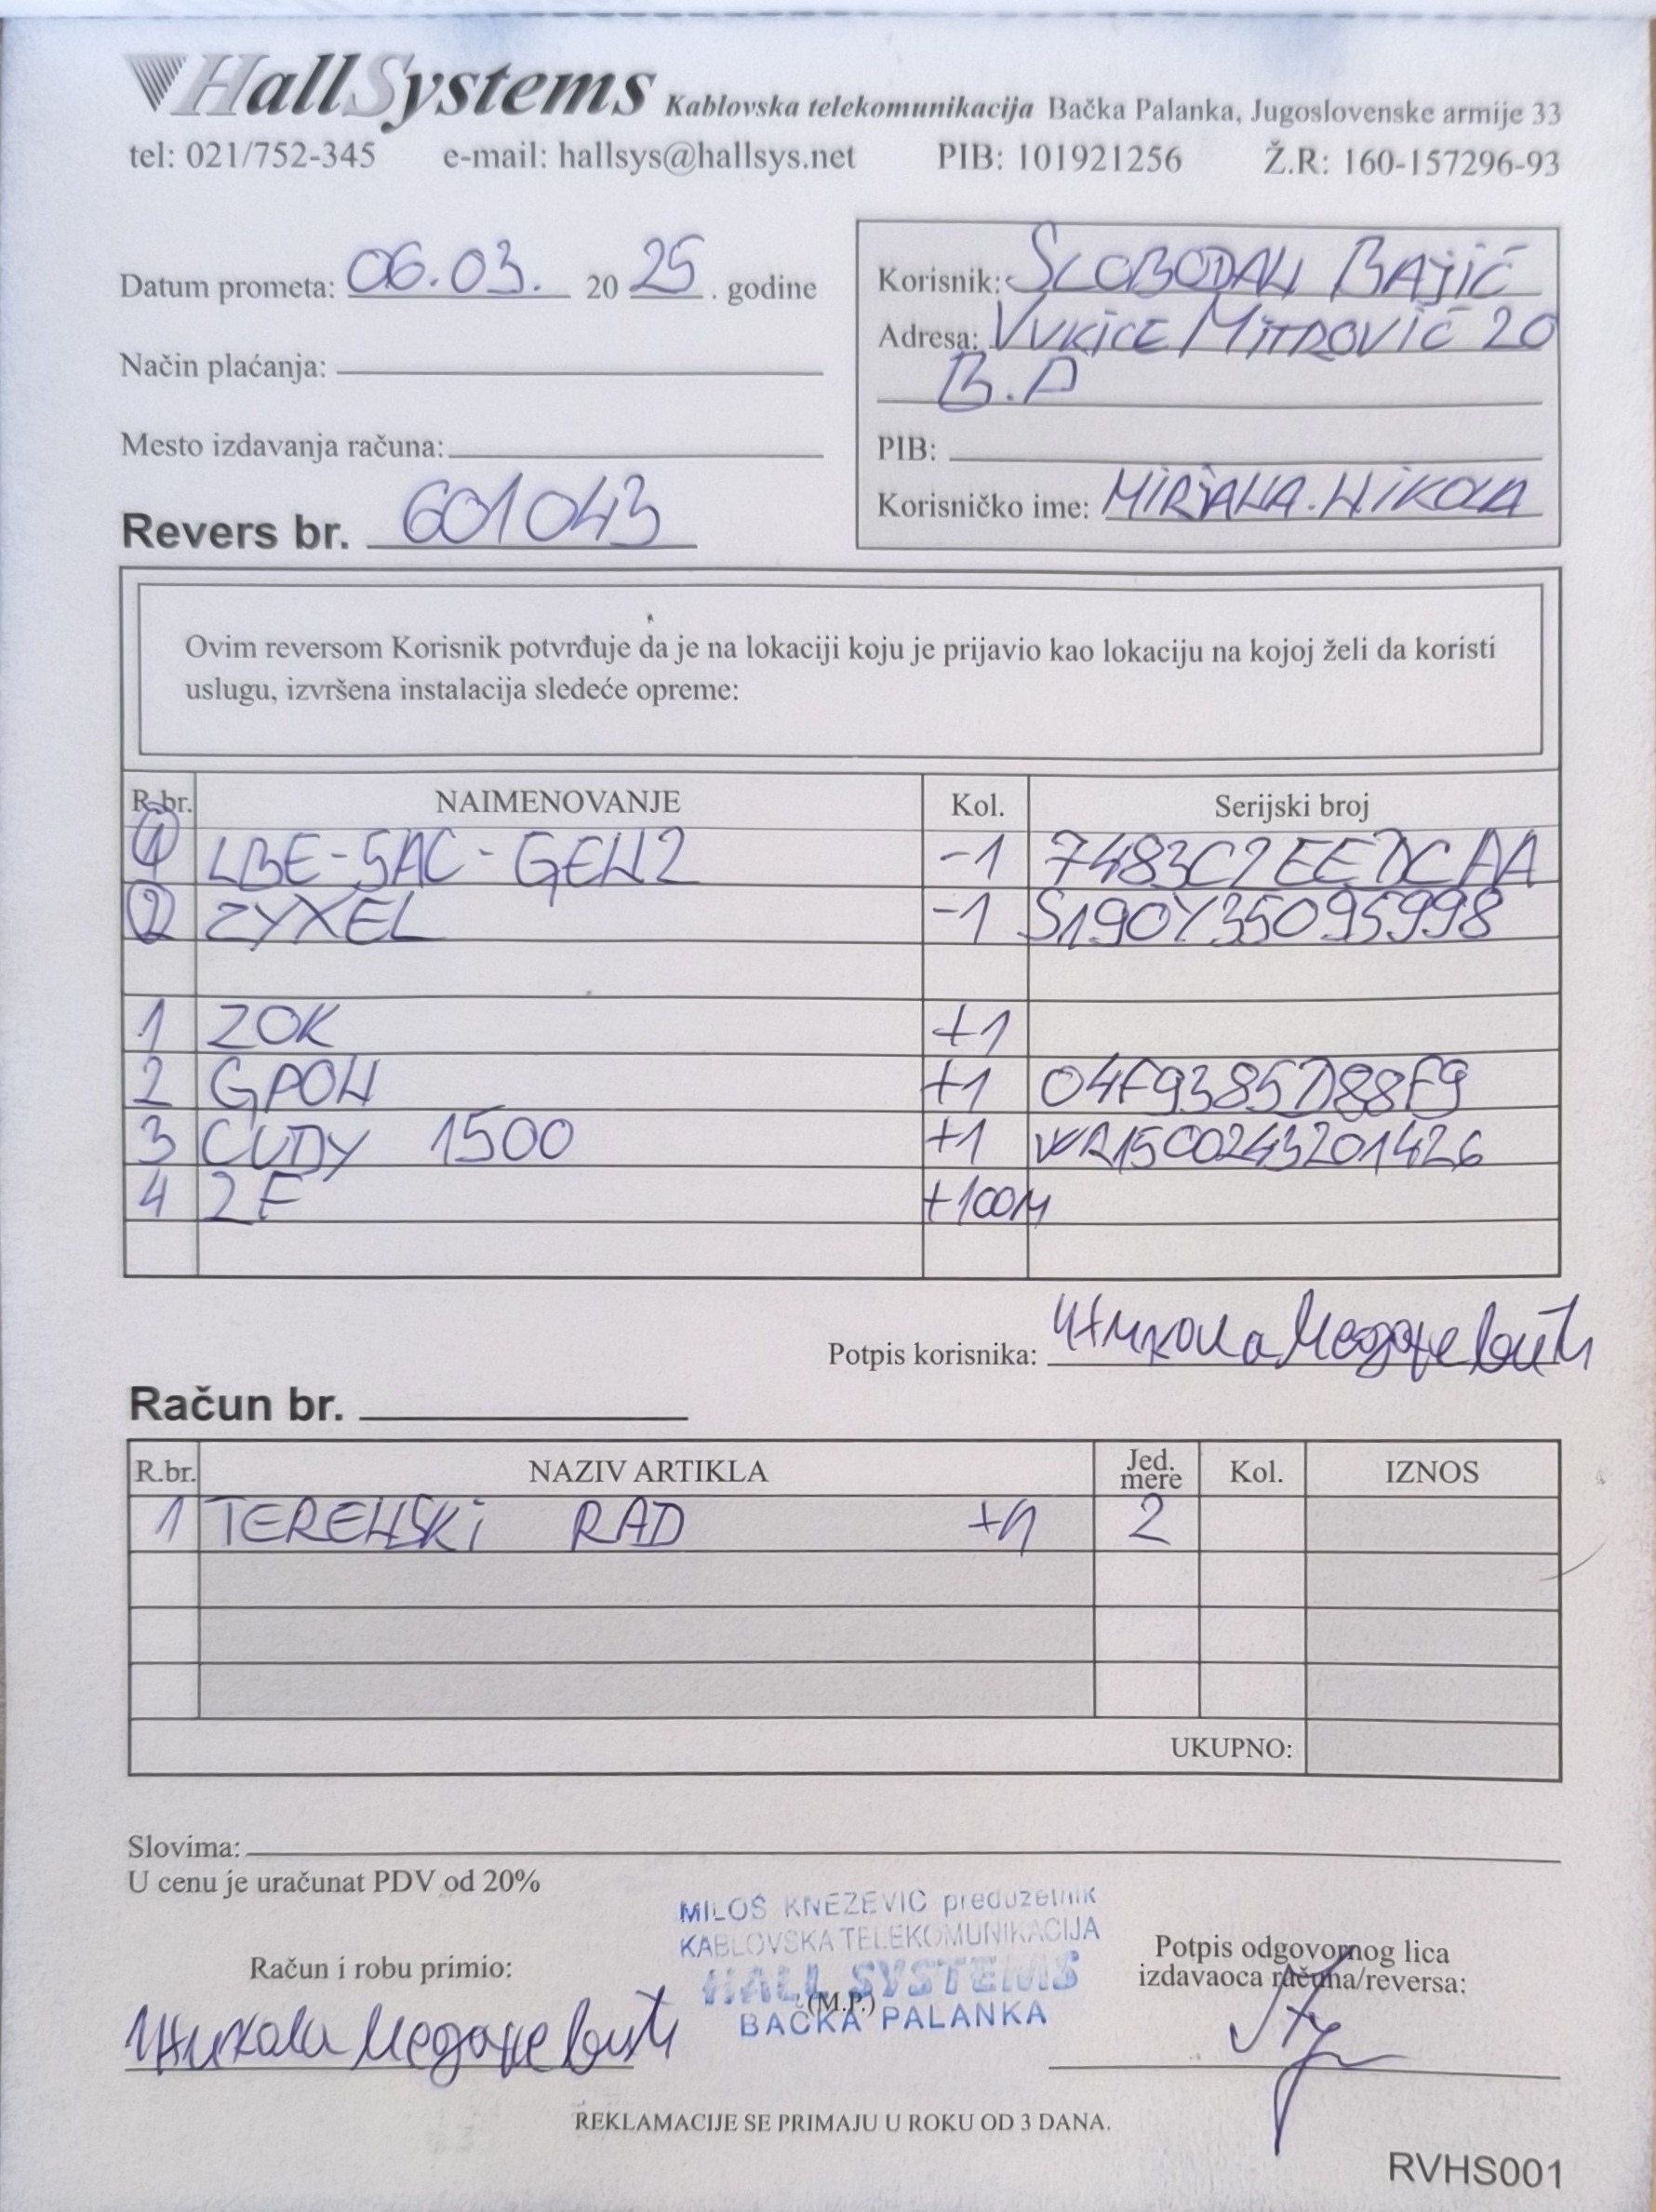 HallSystems Kablovska telekomunikacija Bačka Palanka, Jugoslovenske armije 33
tel: 021/752-345 e-mail: hallsys@hallsys.net PIB: 101921256 Ž.R: 160-157296-93
Datum prometa: 06.03. 20 25. godine
Način plaćanja:
Mesto izdavanja računa:
Revers br. 601043
Korisnik: SLOBODAN BAJIĆ
Adresa: VUKICE MITROVIĆ 20
B.P
PIB:
Korisničko ime: MIRJANA.NIKOLA
Ovim reversom Korisnik potvrđuje da je na lokaciji koju je prijavio kao lokaciju na kojoj želi da koristi
uslugu, izvršena instalacija sledeće opreme:
R.br. NAIMENOVANJE Kol. Serijski broj
1 LBE-5AC-GEN2 -1 7483C2EEDCAA
2 ZYXEL -1 S190Y35095998
1 ZOK +1
2 GPON +1 04F9385D88F9
3 CUDY 1500 +1 WR1500243201426
4 2F +100M
Potpis korisnika:
Račun br.
R.br. NAZIV ARTIKLA Jed. mere Kol. IZNOS
1 TERENSKI RAD +1 2
UKUPNO:
Slovima:
U cenu je uračunat PDV od 20%
MILOŠ KNEZEVIC preduzetnik
KABLOVSKA TELEKOMUNIKACIJA
HALL SYSTEMS
(M.P.)
BAČKA PALANKA
Račun i robu primio:
Potpis odgovornog lica
izdavaoca računa/reversa:
REKLAMACIJE SE PRIMAJU U ROKU OD 3 DANA.
RVHS001